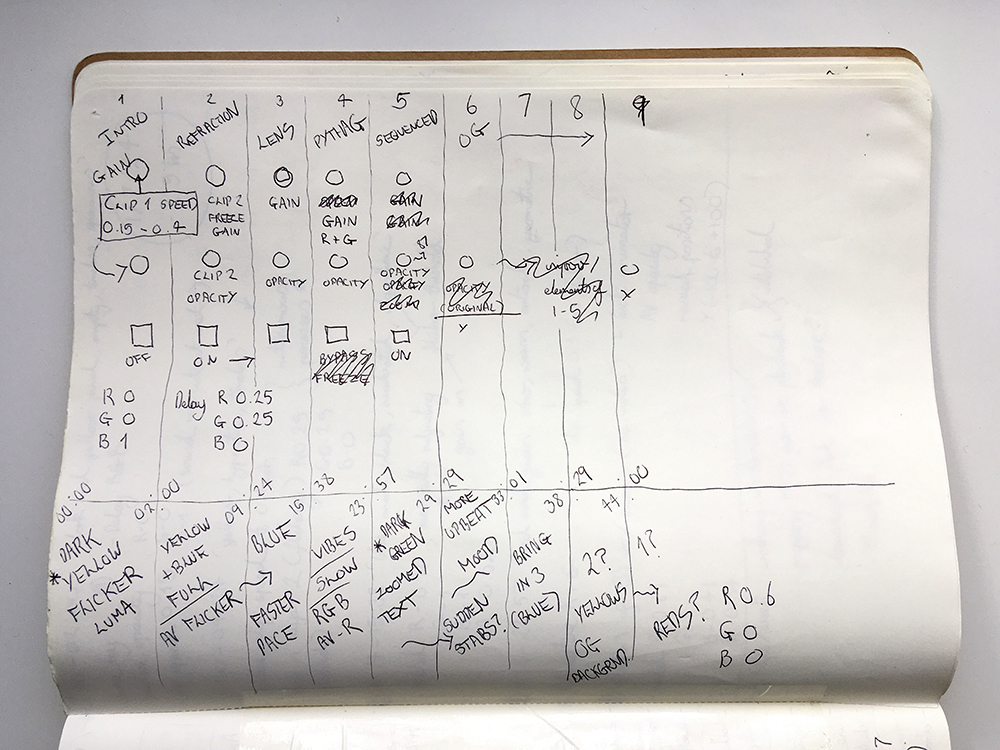 1 2 3 4 5 6 7 8 9
INTRO REFRACTION LENS PYTHAG SEQUENCED OG
GAIN
CLIP 1 SPEED
0.15 - 0.4
CLIP 2
FREEZE
GAIN
GAIN
GAIN
R+G
GAIN
CLIP 2
OPACITY
OPACITY
OPACITY
OPACITY
OPACITY
ZOOM
OPACITY
(ORIGINAL)
X
elements of
1-5
X
OFF
ON
BYPASS
FREEZE
ON
R 0
G 0
B 1
Delay R 0.25
G 0.25
B 0
00:00 02:00 09:27 15:38 23:57 29:29 33:01 38:29 44:00
* DARK
YELLOW
FLICKER
LUMA
YELLOW
+ BLUE
FULL
AV FLICKER
BLUE
FASTER
PACE
VIBES
SLOW
RGB
AV-R
* DARK
GREEN
ZOOMED
TEXT
MORE
UPBEAT
MOOD
SUDDEN
STABS?
BRING
IN 3
(BLUE)
2?
YELLOWS
OG
BACKGRND.
1?
REDS?
R 0.6
G 0
B 0